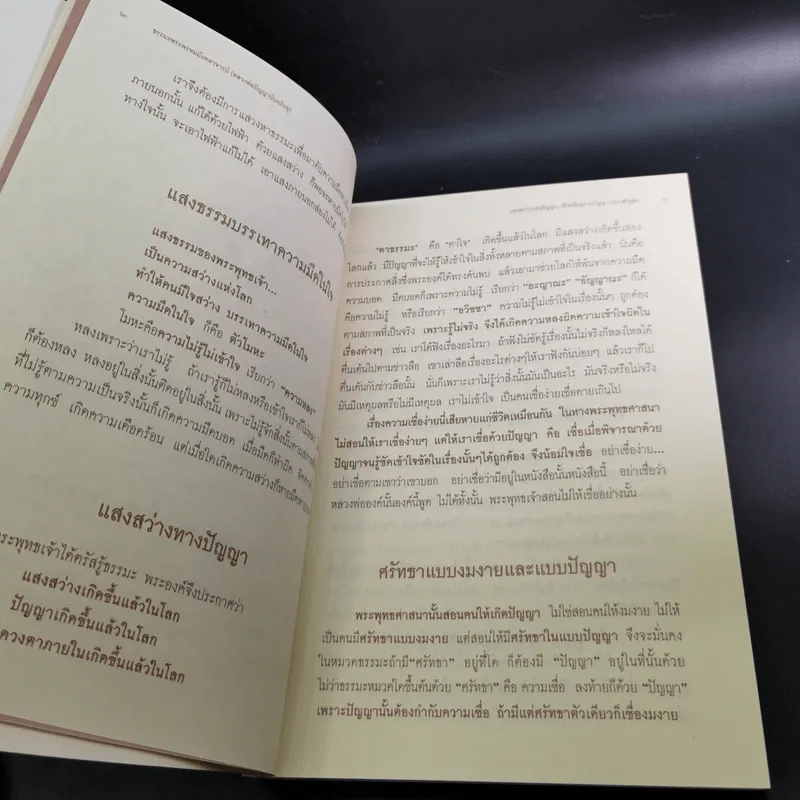 ธรรมะพระพรหมมังคลาจารย์ (หลวงพ่อปัญญานันทภิกขุ)
เราจึงต้องมีการแสวงหาธรรมะเพื่อมาดับความมืด
ภายนอกนั้น แก้ได้ด้วยไฟฟ้า ด้วยแสงสว่าง ก็พอจะหายมืด
ทางใจนั้น จะเอาไฟฟ้าแก้ไม่ได้ เอาแสงภายนอกส่องไม่ได้
แสงธรรมบรรเทาความมืดในใจ
แสงธรรมของพระพุทธเจ้า...
เป็นความสว่างแห่งโลก
ทำให้คนมีใจสว่าง บรรเทาความมืดในใจ
ความมืดในใจ ก็คือ ตัวโมหะ
โมหะคือความไม่รู้ไม่เข้าใจ เรียกว่า "ความหลง"
หลงเพราะว่าเราไม่รู้ ถ้าเรารู้ก็ไม่หลงหรือเข้าใจเราก็ไม่หลง
ก็ต้องหลง หลงอยู่ในสิ่งนั้นติดอยู่ในสิ่งนั้น เพราะไม่รู้จักสิ่งนั้นตาม
ที่ไม่รู้ตามความเป็นจริงนั้นก็เกิดความมืดบอด เมื่อมืดก็ทำผิด
ความทุกข์ เกิดความเดือดร้อน แต่เมื่อใดเกิดความสว่างก็หายมืด
แสงสว่างทางปัญญา
พระพุทธเจ้าได้ตรัสรู้ธรรมะ พระองค์จึงประกาศว่า
แสงสว่างเกิดขึ้นแล้วในโลก
ปัญญาเกิดขึ้นแล้วในโลก
ดวงตาภายในเกิดขึ้นแล้วในโลก
'ตาธรรมะ' คือ 'ตาใจ' เกิดขึ้นแล้วในโลก มีแสงสว่างเกิดขึ้นส่อง
โลกแล้ว มีปัญญาที่จะให้รู้ให้เข้าใจในสิ่งทั้งหลายตามสภาพที่เป็นจริงแล้ว นั่นคือ
การประกาศสิ่งที่พระองค์ได้ทรงค้นพบ แล้วเอามาช่วยโลกให้พ้นจากความมืด
ความบอด มืดบอดก็เพราะความไม่รู้ เรียกว่า "อะญาณะ" "อัญญาณะ" ก็ได้
คือความไม่รู้ หรือเรียกว่า "อวิชชา" ความไม่รู้ไม่เข้าใจในเรื่องนั้นๆ ถูกต้อง
ตามสภาพที่เป็นจริง เพราะรู้ไม่จริง จึงได้เกิดความหลงผิดความเข้าใจผิดใน
เรื่องต่างๆ เช่น เราได้ฟังเรื่องอะไรมา ถ้าฟังไม่ชัดรู้เรื่องนั้นไม่จริงก็หลงใหลได้
ตื่นเต้นไปตามข่าวลือ เขาเล่าลือเรื่องอะไรต่างๆให้เราฟังกันบ่อยๆ แล้วเราก็ไป
ตื่นเต้นกับข่าวลือนั้น นั่นก็เพราะเราไม่รู้ว่าสิ่งนั้นมันเป็นอะไร มันจริงหรือไม่จริง
มันมีเหตุผลหรือไม่มีเหตุผล เราไม่เข้าใจ เป็นคนเชื่อง่ายเชื่อดายเกินไป
เรื่องความเชื่อง่ายนี่เสียหายแก่ชีวิตเหมือนกัน ในทางพระพุทธศาสนา
ไม่สอนให้เราเชื่อง่ายๆ แต่ให้เราเชื่อด้วยปัญญา คือ เชื่อเมื่อพิจารณาด้วย
ปัญญาจนรู้ชัดเข้าใจชัดในเรื่องนั้นๆได้ถูกต้อง จึงน้อมใจเชื่อ อย่าเชื่อง่าย...
อย่าเชื่อตามเขาว่าเขาบอก อย่าเชื่อว่ามีอยู่ในหนังสือนั้นหนังสือนี้ อย่าเชื่อว่า
หลวงพ่อองค์นั้นองค์นี้พูด ไม่ได้ทั้งนั้น พระพุทธเจ้าสอนไม่ให้เชื่ออย่างนั้น
ศรัทธาแบบงมงายและแบบปัญญา
พระพุทธศาสนานั้นสอนคนให้เกิดปัญญา ไม่ใช่สอนคนให้งมงาย ไม่ให้
เป็นคนมีศรัทธาแบบงมงาย แต่สอนให้มีศรัทธาในแบบปัญญา จึงจะมั่นคง
ในหมวดธรรมะถ้ามี "ศรัทธา" อยู่ที่ใด ก็ต้องมี "ปัญญา" อยู่ในที่นั้นด้วย
ไม่ว่าธรรมะหมวดใดขึ้นต้นด้วย "ศรัทธา" คือ ความเชื่อ ลงท้ายก็ด้วย "ปัญญา"
เพราะปัญญานั้นต้องกำกับความเชื่อ ถ้ามีแต่ศรัทธาตัวเดียวก็เชื่องมงาย